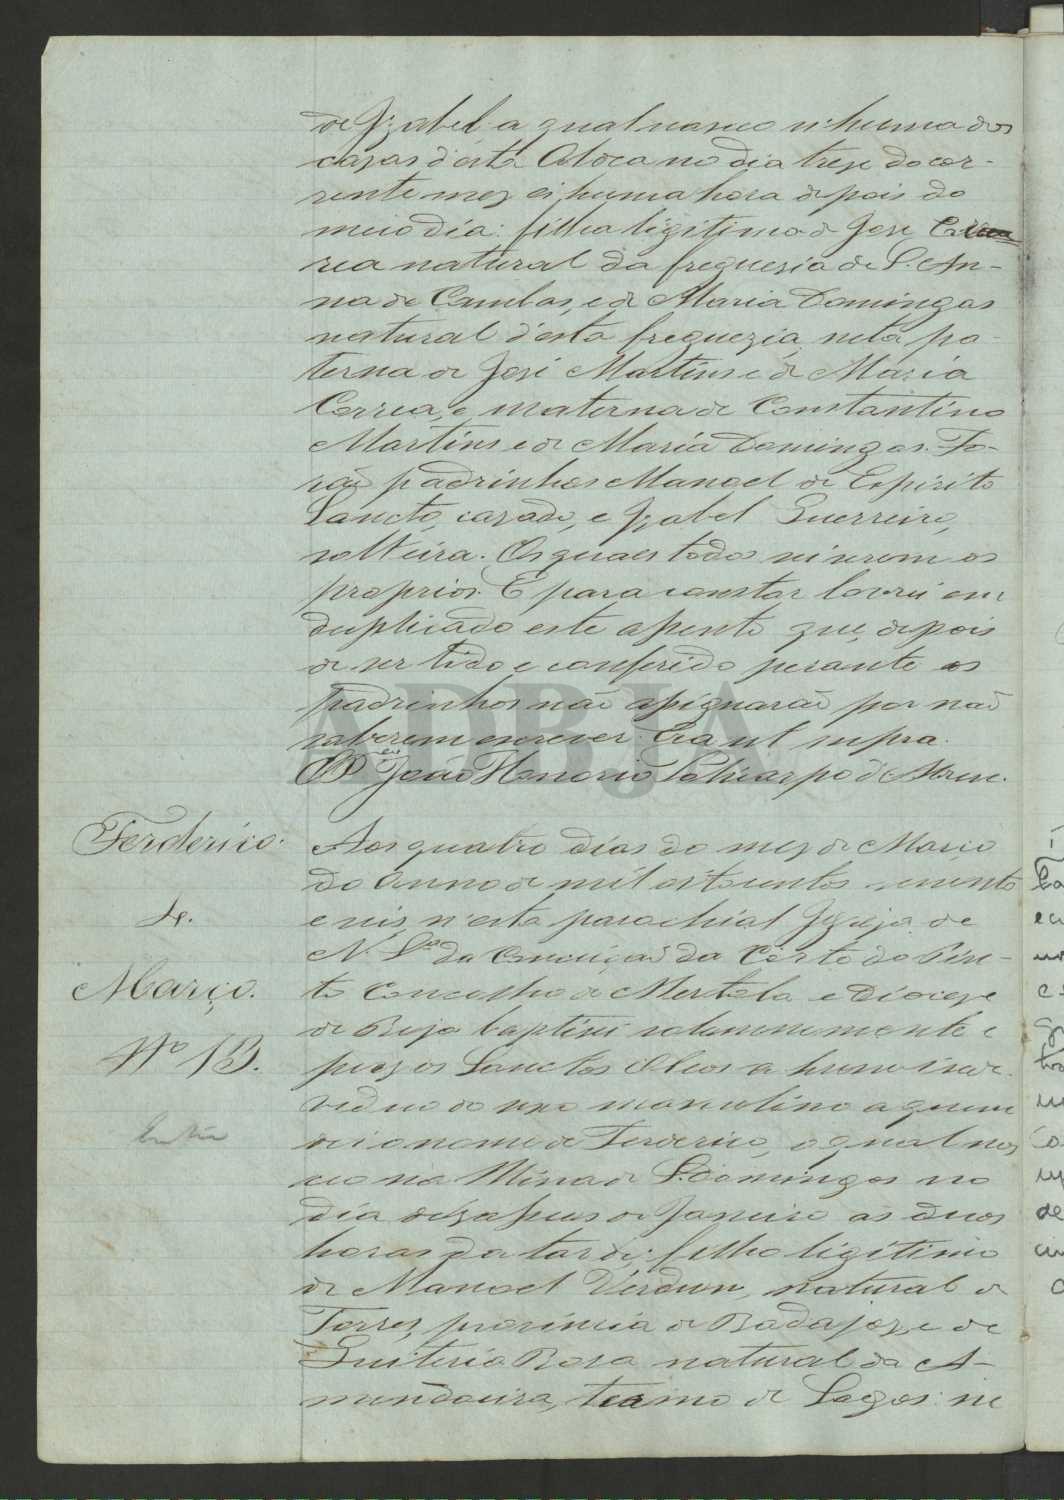 de Izabel a qual nasceo n'huma das
casas d'esta Aldea no dia treze do cor-
rente mez ás huma hora depois do
meio dia: filha ligitima de Jose Cor
rea natural da freguesia de S. An-
na de Cambas, e de Maria Domingas
natural d'esta freguezia, neta pa-
terna de José Martins e de Maria
Correa, e materna de Constantino
Martins e de Maria Domingas. Fo-
rão padrinhos Manoel do Espirito
Sancto, cazado, e Izabel Guerreiro,
solteira. Os quaes todos serem os
proprios. E para constar lavrei em
duplicado este assento, que depois
de ser lido e conferido perante os
padrinhos não assignarão por não
saberem escrever. Era ut supra.
O P. João Honorio Polycarpo d'Abreu.
Ferderico.
4.
Março.
Nº 13.
Aos quatro dias do mez de Março
do anno de mil oitocentos secenta
e seis, n'esta parochial Igreja de
N. Sra. da Conceição da Corte do Pin-
to Concelho de Mertola e Diocese
de Beja baptisei solemnemente e
puz os Sanctos Oleos a hum indi-
viduo do sexo masculino a quem
dei o nome de Ferderico, o qual nas
ceo na Mina de S. Domingos no
dia dezaseis de Janeiro ás duas
horas da tarde; filho ligitimo
de Manoel Verdun, natural de
Torres, provincia de Badajoz, e de
Quiteria Rosa natural da A-
mendoeira, termo de Lagos: ne
ADBJA